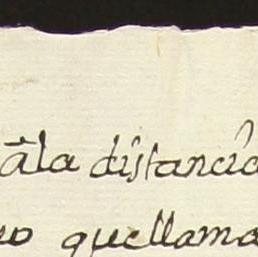 âla distancia
no quellama